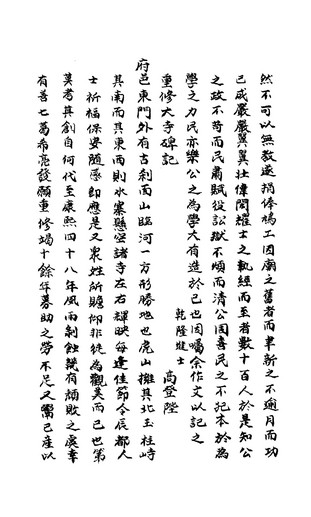 然不可以無教遂捐俸鳩工因廟之舊者而聿新之不逾月而功
已成嚴嚴翼翼壯偉閎耀士之執經而至者數十百人於是知公
之政不苛而民肅賦役訟獄不煩而清公固喜民之不犯本於為
學之力民亦樂公之為學大有造於己也因囑余作文以記之
重修大寺碑記
乾隆進士 高登陞
府邑東門外有古刹面山臨河一方形勝地也虎山擁其北玉柱峙
其南而其東西則水寨懸空諸寺左右輝映每逢佳節令辰都人
士祈福保安隨感即應是又衆姓所瞻仰非徒為觀美而已也第
莫考其創自何代至康熙四十八年風雨剝蝕幾有頹敗之虞幸
有善士葛希亮發願重修竭十餘年募助之勞不足又鬻己產以